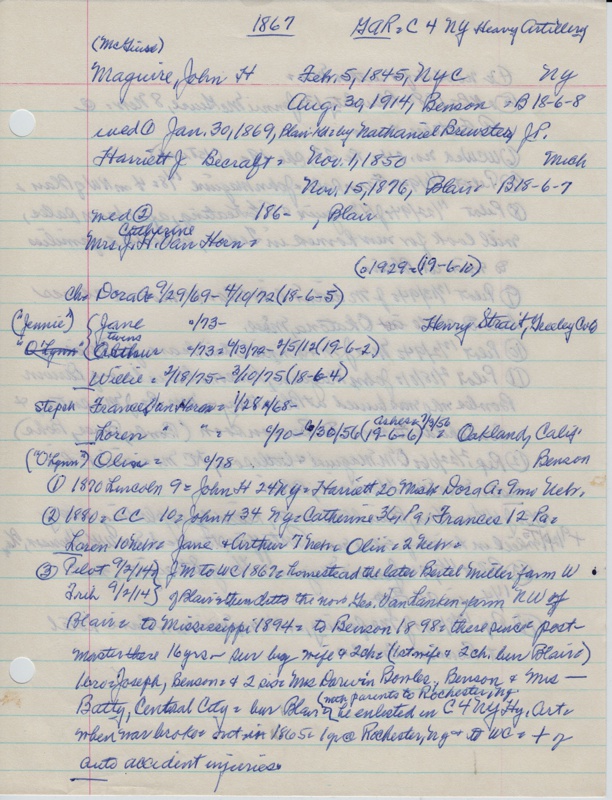 1867 GAR = C 4 NY Heavy Artillery
(McGuire)
Maguire, John H Feb. 5, 1845, NYC NY
Aug. 30, 1914, Benson = B 18-6-8
wed ① Jan. 30, 1869, Blair by Nathaniel Brewster, J.P.
Harriett J. Becraft = Nov. 1, 1850 Mich
Nov. 15, 1876, Blair - B18-6-7
wed ② 186- , Blair
Catherine
Mrs. J. H. Van Horn =
(01929 = (19-6-10)
ch. Dora A = 9/29/69 - 4/10/72 (18-6-5)
("Jennie") { Jane 0/73 - Henry Strait, Greeley Co
twins
"O'Lynn" { Arthur 0/73 = 4/13/72 - 2/5/12 (19-6-2)
Willie = 2/18/75 - 3/10/75 (18-6-4)
steph Frances Van Horn = 1/28/68 -
Loren " " = 0/70 - 6/30/56 (19-6-6) ashes = 7/3/56 = Oakland, Calif
("O'Lynn") Olin = 0/78 Benson
① 1870 Lincoln 9 = John H 24 NY = Harriett 20 Mich Dora A = 9mo Nebr.
② 1880 = CC 10 = John H 34 NY = Catherine 36 Pa, Frances 12 Pa =
Loren 10 Nebr = Jane & Arthur 7 Nebr = Olin = 2 Nebr =
③ Pilot 9/2/14 } JM to WC 1867 = homestead the later Bertel Miller farm W
Trib 9/2/14 } of Blair = then to the now Geo. Van Lankin farm NW of
Blair = to Mississippi 1894 = to Benson 1898 = there since post-
master there 16 yrs - sur by wife & 2 ch = (1st wife & 2 ch. bur Blair)
1 bro = Joseph, Benson = & 2 sis = Mrs Darwin Bowles, Benson & Mrs —
Batty, Central City = bur Blair = (with parents to Rochester, NY
he enlisted in C 4 NY Hy. Art =
when war broke out = in 1865 = 1 yr @ Rochester, NY & to WC = + of
auto accident injuries =